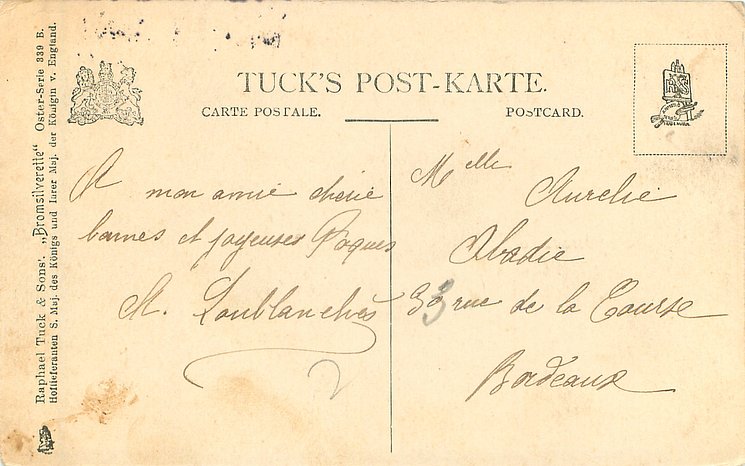 TUCK'S POST-KARTE.
CARTE POSTALE. POSTCARD.
A mon amie chérie
bonnes et joyeuses Pâques
Melle Aurelie
Abadie
rue de la Course
Bordeaux
Raphael Tuck & Sons' „Bromsilverette" Oster-Serie 339 B.
Hoflieferanten S. Maj. des Königs und Ihrer Maj. der Königin v. England.